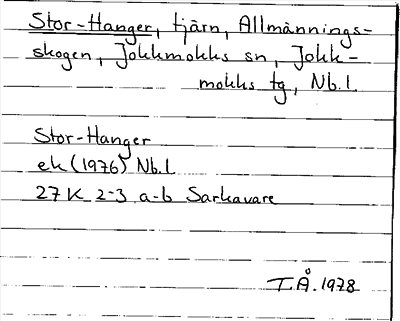 Stor-Hanger, tjärn, Allmännings-
skogen, Jokkmokks sn, Jokk-
mokks tg, Nb.l.
Stor-Hanger
ek (1976) Nb.l.
27 K 2-3 a-b Sarkavare
T.Å. 1978